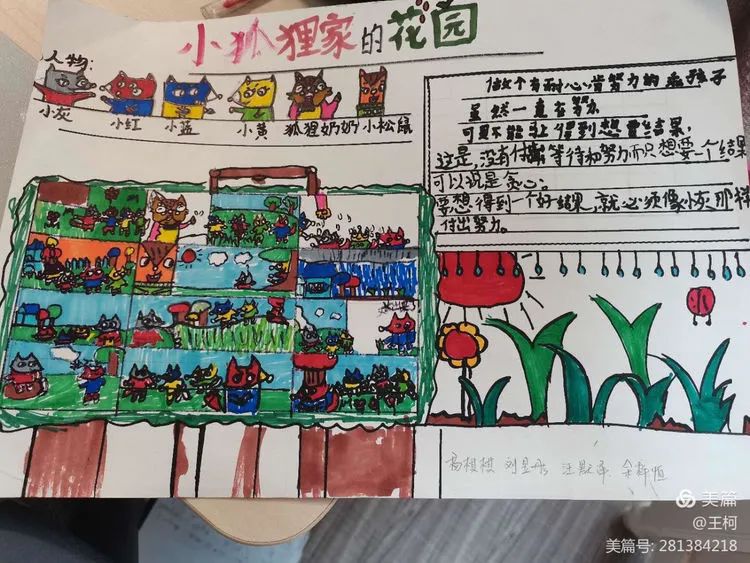 小狐狸家的花园
人物:
小灰 小红 小蓝 小黄 狐狸奶奶 小松鼠
做个有耐心肯努力的乖孩子
虽然一直有努力
可是不能让得到想要结果,
这是没有付出等待和努力而只想要一个结果
可以说是贪心。
要想得到一个好结果,就必须像小灰那样
付出努力。
美篇
@王柯
美篇号: 281384218